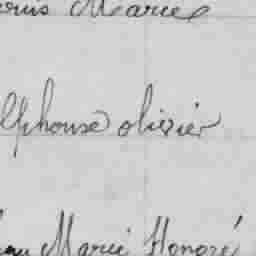 ouis Marie
lphonse olivier
an Marie Honoré